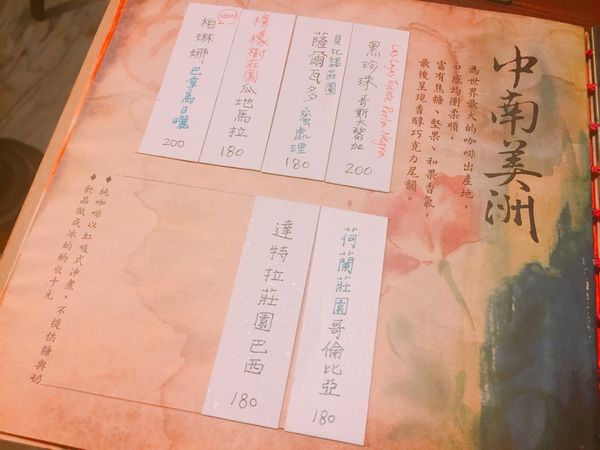 中南美洲
為世界最大的咖啡出產地，
口感均衡柔順，
富有焦糖、堅果、和果香氣，
最後呈現香醇巧克力尾韻。
黑珍珠 哥斯大黎加
200
貝比諾莊園
薩爾瓦多 蜜處理
180
橡樹莊園 瓜地馬拉
180
柏琳娜 巴拿馬日曬
200
荷蘭莊園哥倫比亞
180
達特拉莊園巴西
180
◆ 純咖啡以虹吸式沖煮，不提供糖與奶
◆ 飲品做成冰的酌收十元